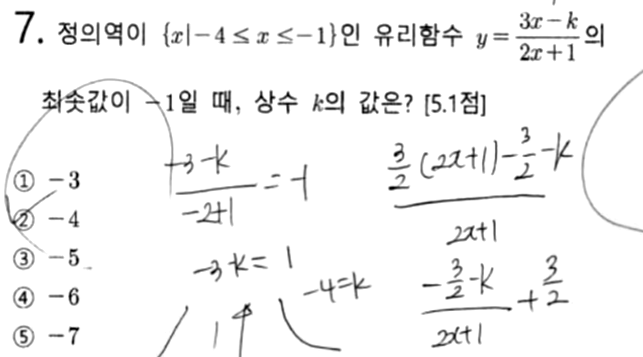 7. 정의역이 {x|-4≤x≤-1}인 유리함수 y=(3x-k)/(2x+1)의
최솟값이 -1일 때, 상수 k의 값은? [5.1점]
① -3
② -4
③ -5
④ -6
⑤ -7
(-3-k)/(-2+1)=-1
-3-k=1
-4=k
(3/2(2x+1)-3/2-k)/(2x+1)
(-3/2-k)/(2x+1)+3/2